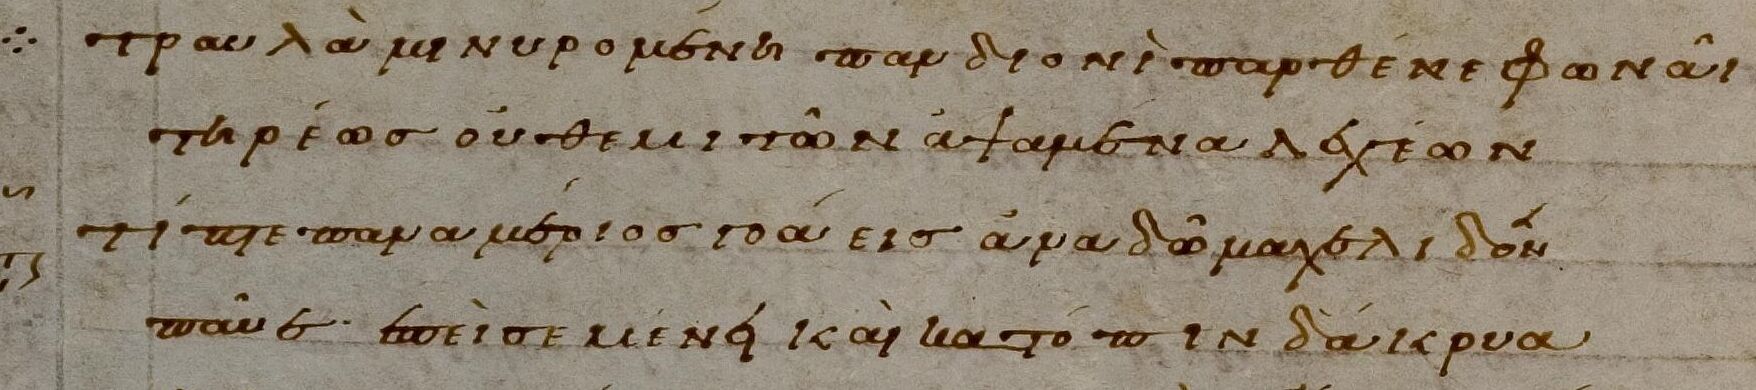 τραυλὰ μινυρομένη πανδιονὶ παρθένε φωνᾶι
τηρέωσ οὐ θεμιτῶν ἁψαμένα λεχέων
τίπτε παναμέριος γοάεισ ἀνα δῶμα χελιδόν
παῦε· ἐπεὶ σε μένει καὶ κατόπιν δάκρυα